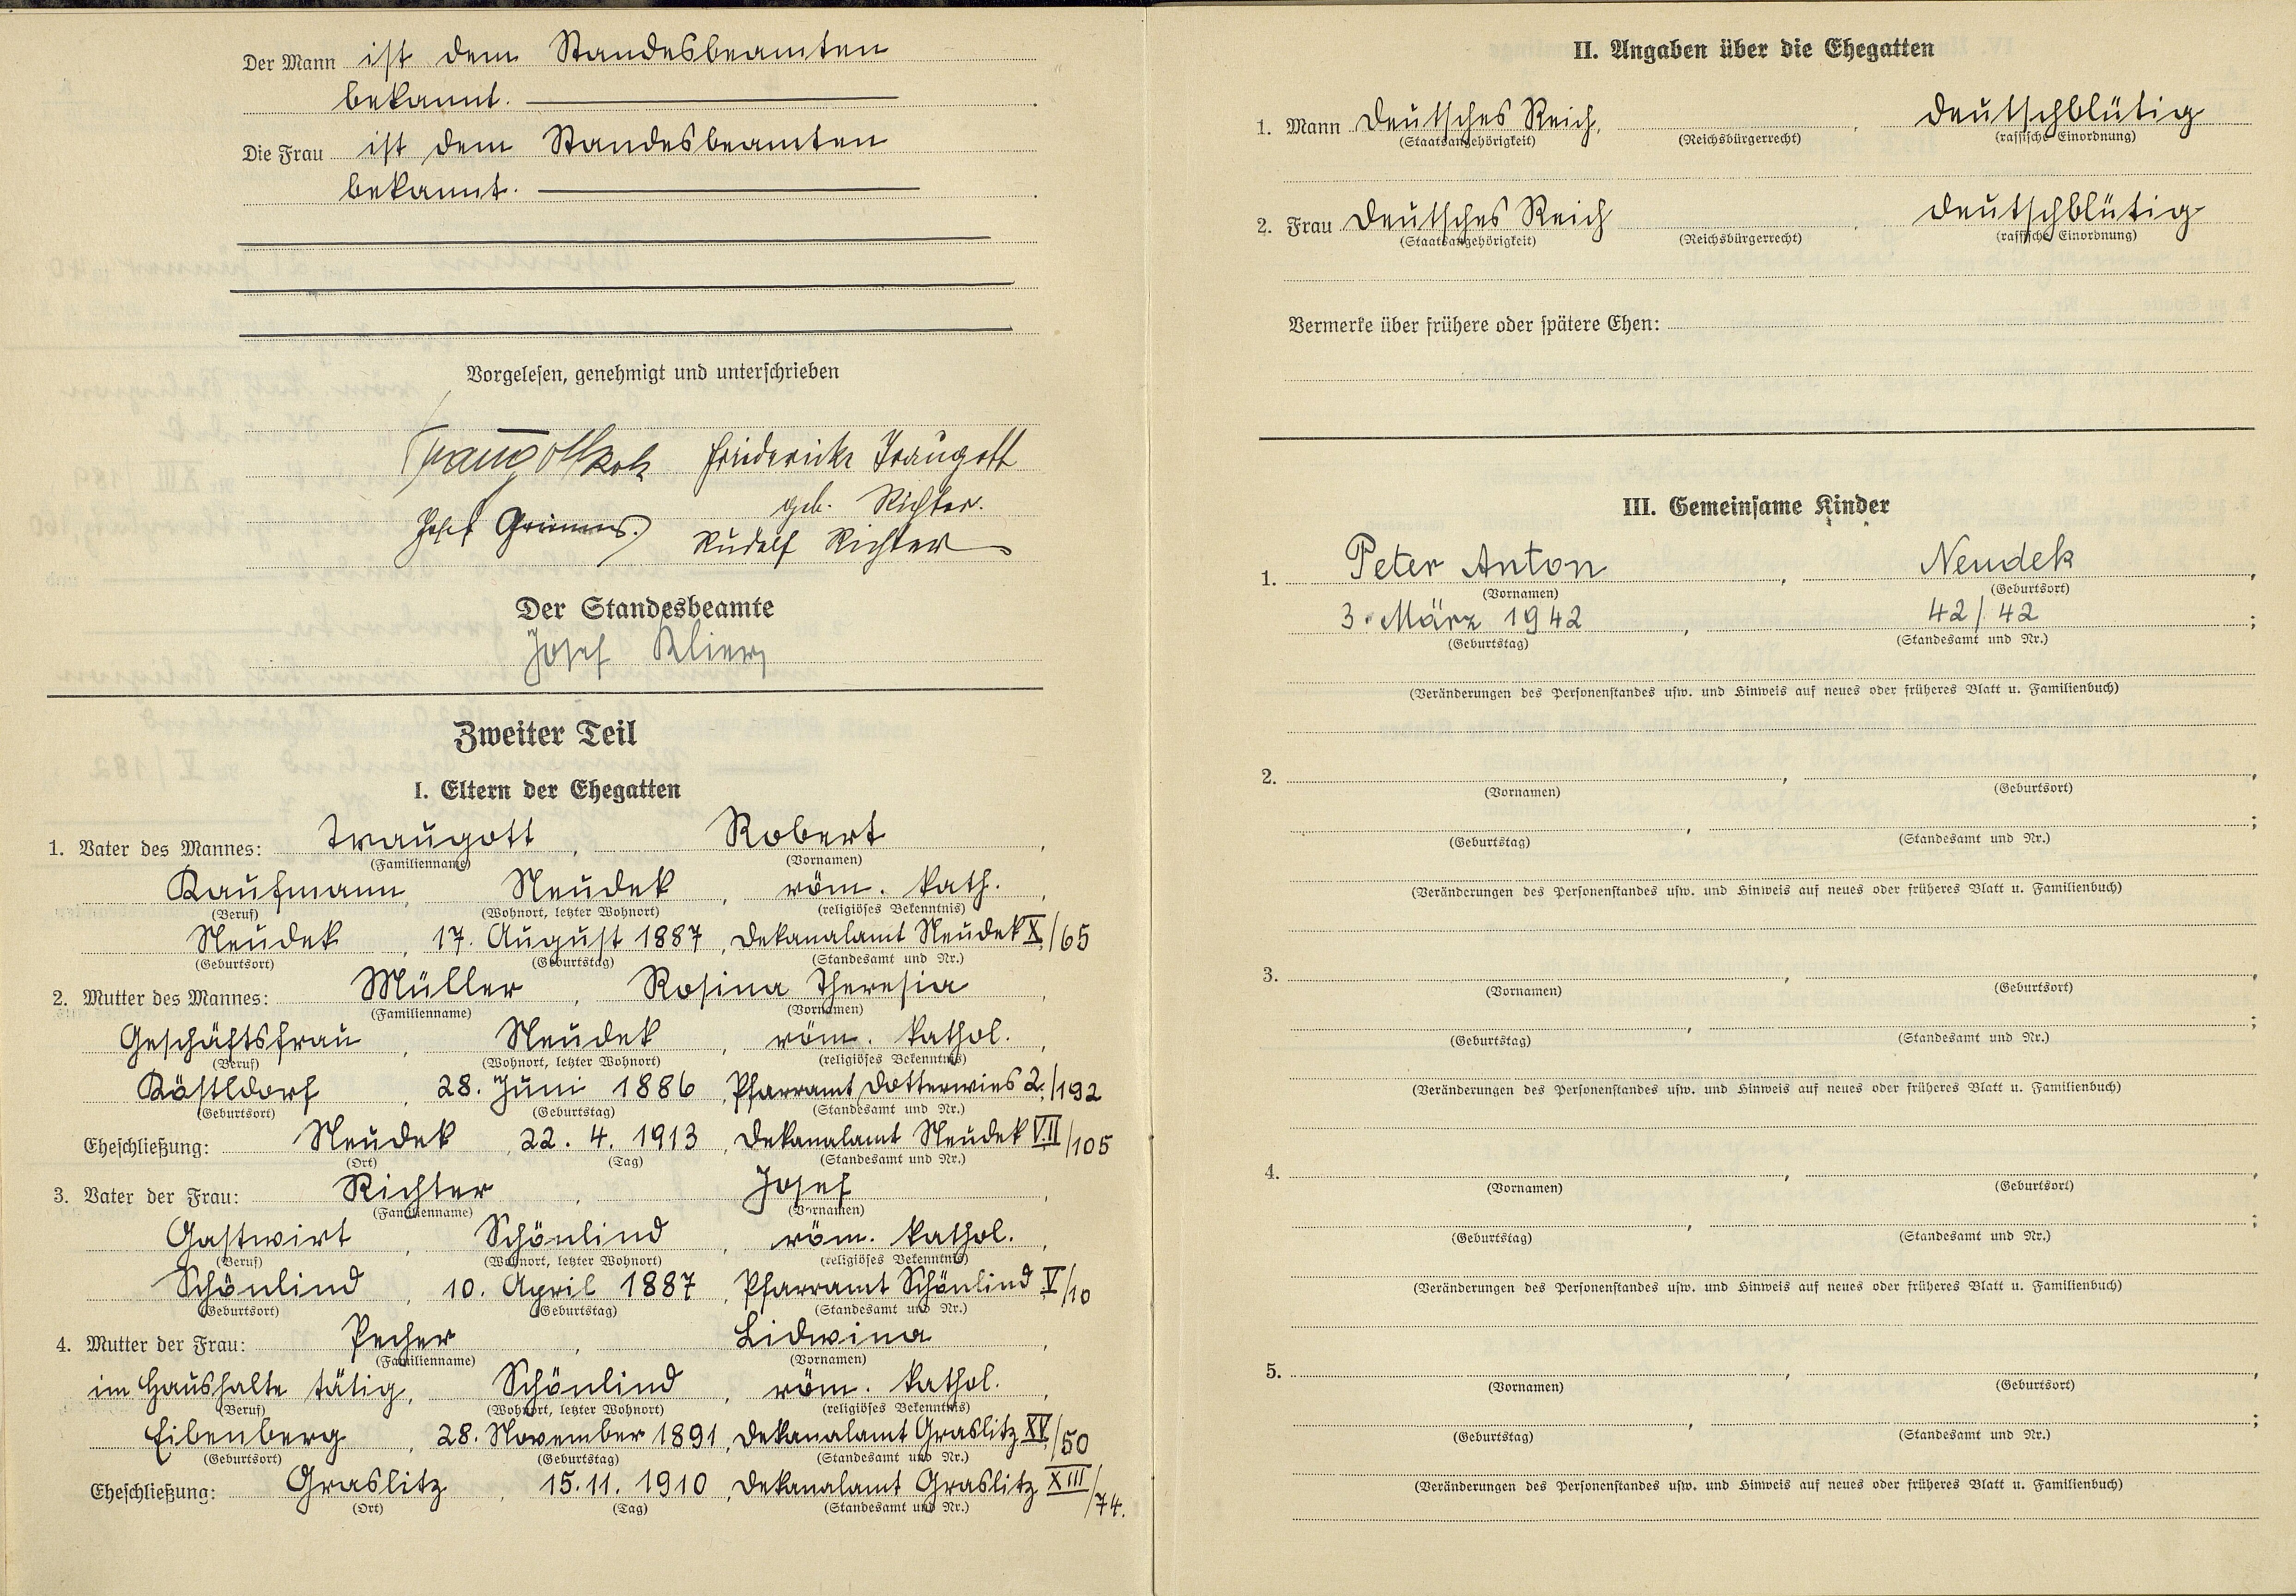 Der Mann ist dem Standesbeamten
bekannt.
Die Frau ist dem Standesbeamten
bekannt.
Vorgelesen, genehmigt und unterschrieben
Friedericke Traugott
geb. Richter.
Josef Rudolf Richter
Der Standesbeamte
Josef
Zweiter Teil
I. Eltern der Ehegatten
1. Vater des Mannes: Traugott, Robert,
(Familienname) (Vornamen)
Kaufmann, Neudek, röm. kath.,
(Beruf) (Wohnort, letzter Wohnort) (religiöses Bekenntnis)
Neudek, 17. August 1887, Dekanalamt Neudek X/65
(Geburtsort) (Geburtstag) (Standesamt und Nr.)
2. Mutter des Mannes: Müller, Rosina Theresia,
(Familienname) (Vornamen)
Geschäftsfrau, Neudek, röm. kathol.,
(Beruf) (Wohnort, letzter Wohnort) (religiöses Bekenntnis)
Köstldorf, 28. Juni 1886, Pfarramt Dotterwies 2./192
(Geburtsort) (Geburtstag) (Standesamt und Nr.)
Eheschließung: Neudek, 22. 4. 1913, Dekanalamt Neudek VII/105
(Ort) (Tag) (Standesamt und Nr.)
3. Vater der Frau: Richter, Josef,
(Familienname) (Vornamen)
Gastwirt, Schönlind, röm. kathol.,
(Beruf) (Wohnort, letzter Wohnort) (religiöses Bekenntnis)
Schönlind, 10. April 1887, Pfarramt Schönlind V/10
(Geburtsort) (Geburtstag) (Standesamt und Nr.)
4. Mutter der Frau: Pecher, Lidwina,
(Familienname) (Vornamen)
im Haushalte tätig, Schönlind, röm. kathol.,
(Beruf) (Wohnort, letzter Wohnort) (religiöses Bekenntnis)
Eibenberg, 28. November 1891, Dekanalamt Graslitz XV/50
(Geburtsort) (Geburtstag) (Standesamt und Nr.)
Eheschließung: Graslitz, 15. 11. 1910, Dekanalamt Graslitz XIII/74.
(Ort) (Tag) (Standesamt und Nr.)
II. Angaben über die Ehegatten
1. Mann Deutsches Reich, deutschblütig
(Staatsangehörigkeit) (Reichsbürgerrecht) (rassische Einordnung)
2. Frau Deutsches Reich deutschblütig
(Staatsangehörigkeit) (Reichsbürgerrecht) (rassische Einordnung)
Vermerke über frühere oder spätere Ehen:
III. Gemeinsame Kinder
1. Peter Anton, Neudek,
(Vornamen) (Geburtsort)
3. März 1942, 42/42;
(Geburtstag) (Standesamt und Nr.)
(Veränderungen des Personenstandes usw. und Hinweis auf neues oder früheres Blatt u. Familienbuch)
2. , ,
(Vornamen) (Geburtsort)
, ;
(Geburtstag) (Standesamt und Nr.)
(Veränderungen des Personenstandes usw. und Hinweis auf neues oder früheres Blatt u. Familienbuch)
3. , ,
(Vornamen) (Geburtsort)
, ;
(Geburtstag) (Standesamt und Nr.)
(Veränderungen des Personenstandes usw. und Hinweis auf neues oder früheres Blatt u. Familienbuch)
4. , ,
(Vornamen) (Geburtsort)
, ;
(Geburtstag) (Standesamt und Nr.)
(Veränderungen des Personenstandes usw. und Hinweis auf neues oder früheres Blatt u. Familienbuch)
5. , ,
(Vornamen) (Geburtsort)
, ;
(Geburtstag) (Standesamt und Nr.)
(Veränderungen des Personenstandes usw. und Hinweis auf neues oder früheres Blatt u. Familienbuch)